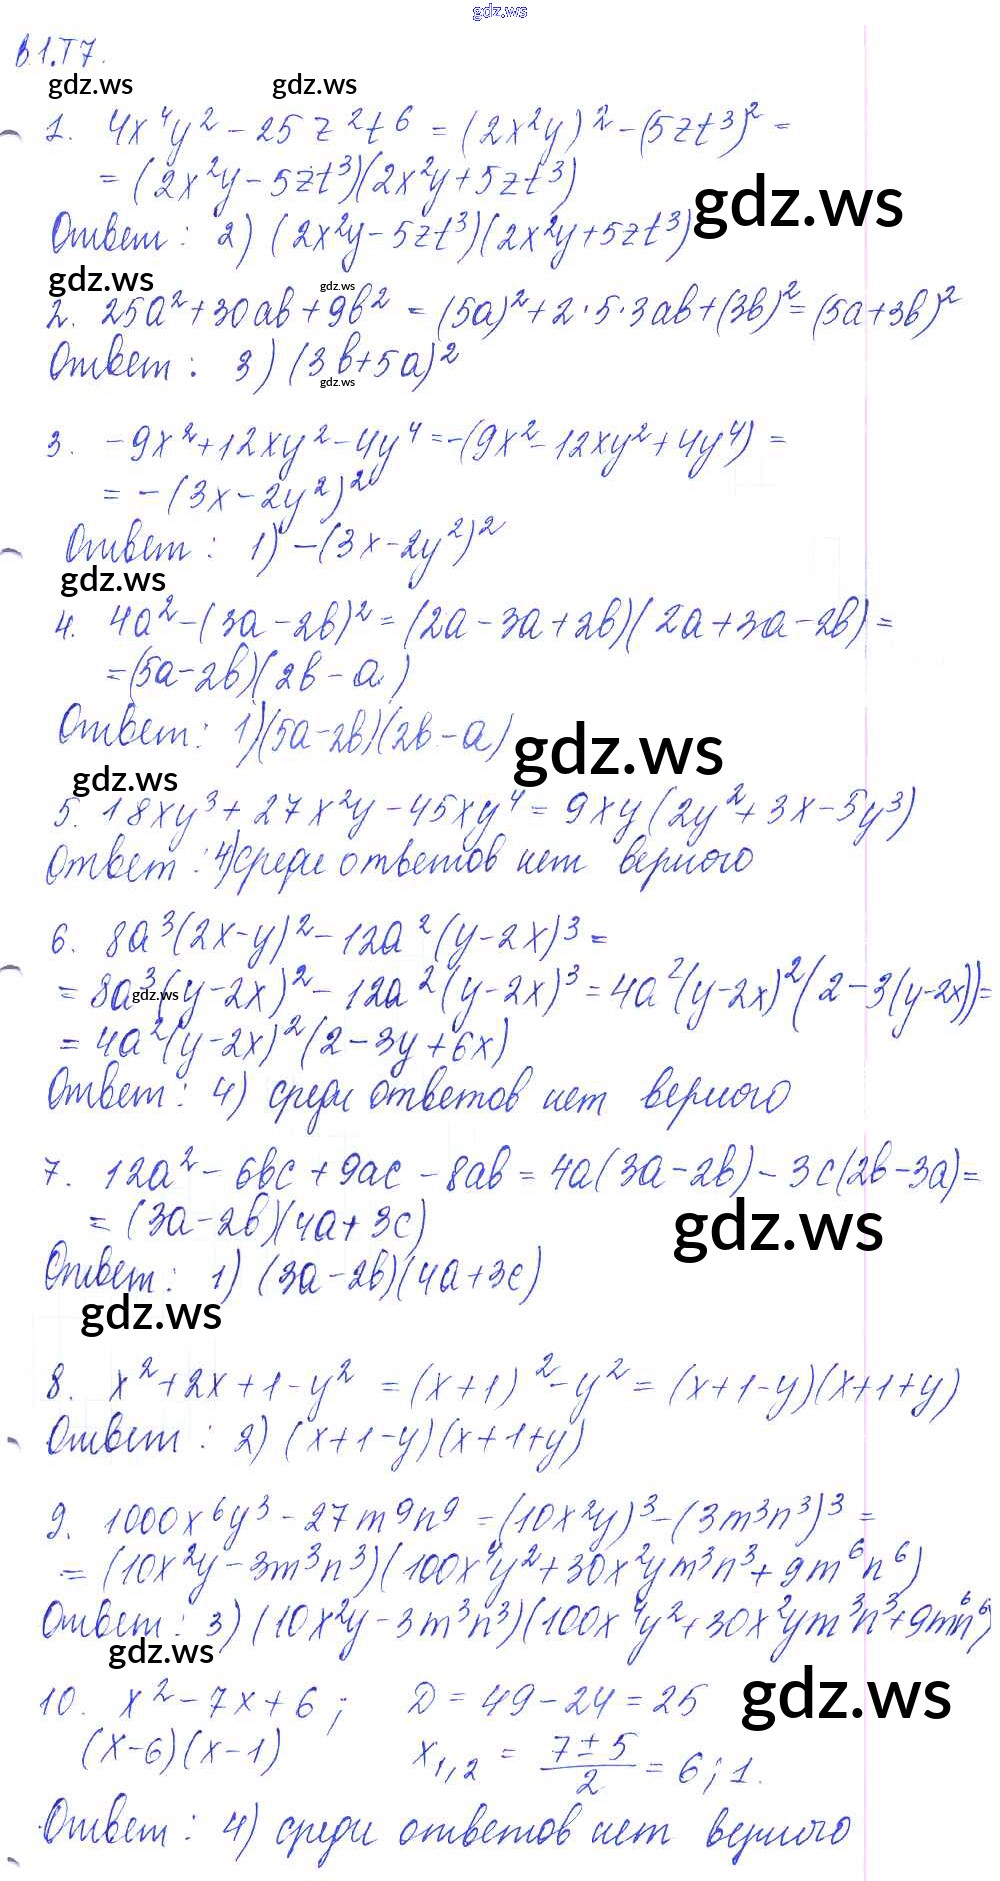 gdz.ws
В.1.Т7.
gdz.ws gdz.ws
1. 4x⁴y² - 25z²t⁶ = (2x²y)² - (5zt³)² =
= (2x²y - 5zt³)(2x²y + 5zt³)
gdz.ws
Ответ: 2) (2x²y - 5zt³)(2x²y + 5zt³)
gdz.ws gdz.ws
2. 25a² + 30ab + 9b² = (5a)² + 2·5·3ab + (3b)² = (5a+3b)²
Ответ: 3) (3b+5a)²
gdz.ws
3. -9x² + 12xy² - 4y⁴ = -(9x² - 12xy² + 4y⁴) =
= -(3x - 2y²)²
Ответ: 1) -(3x - 2y²)²
gdz.ws
4. 4a² - (3a - 2b)² = (2a - 3a + 2b)(2a + 3a - 2b) =
= (5a - 2b)(2b - a)
Ответ: 1)(5a - 2b)(2b - a)
gdz.ws
gdz.ws
5. 18xy³ + 27x²y - 45xy⁴ = 9xy(2y² + 3x - 5y³)
Ответ: 4)среди ответов нет верного
6. 8a³(2x-y)² - 12a²(y-2x)³ =
= 8a³(y-2x)² - 12a²(y-2x)³ = 4a²(y-2x)²(2-3(y-2x)) =
gdz.ws
= 4a²(y-2x)²(2-3y+6x)
Ответ: 4) среди ответов нет верного
7. 12a² - 6bc + 9ac - 8ab = 4a(3a-2b) - 3c(2b-3a) =
= (3a-2b)(4a+3c)
gdz.ws
Ответ: 1) (3a-2b)(4a+3c)
gdz.ws
8. x² + 2x + 1 - y² = (x+1)² - y² = (x+1-y)(x+1+y)
Ответ: 2) (x+1-y)(x+1+y)
9. 1000x⁶y³ - 27m⁹n⁹ = (10x²y)³ - (3m³n³)³ =
= (10x²y - 3m³n³)(100x⁴y² + 30x²ym³n³ + 9m⁶n⁶)
Ответ: 3) (10x²y - 3m³n³)(100x⁴y² + 30x²ym³n³ + 9m⁶n⁶)
gdz.ws
10. x² - 7x + 6; D = 49 - 24 = 25
gdz.ws
(x-6)(x-1) x₁,₂ = (7±5)/2 = 6; 1.
Ответ: 4) среди ответов нет верного